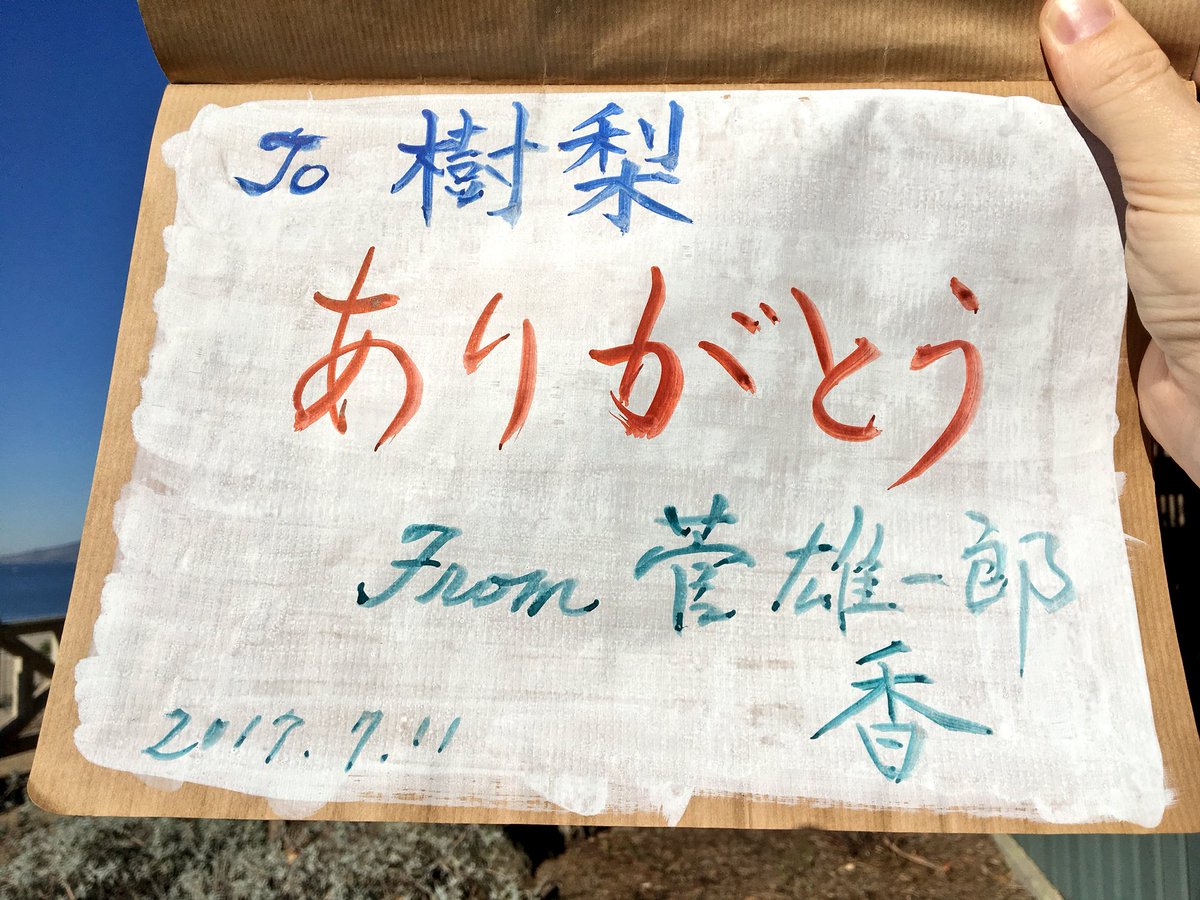 To 樹梨
ありがとう
From 菅雄一郎
香
2017.7.11